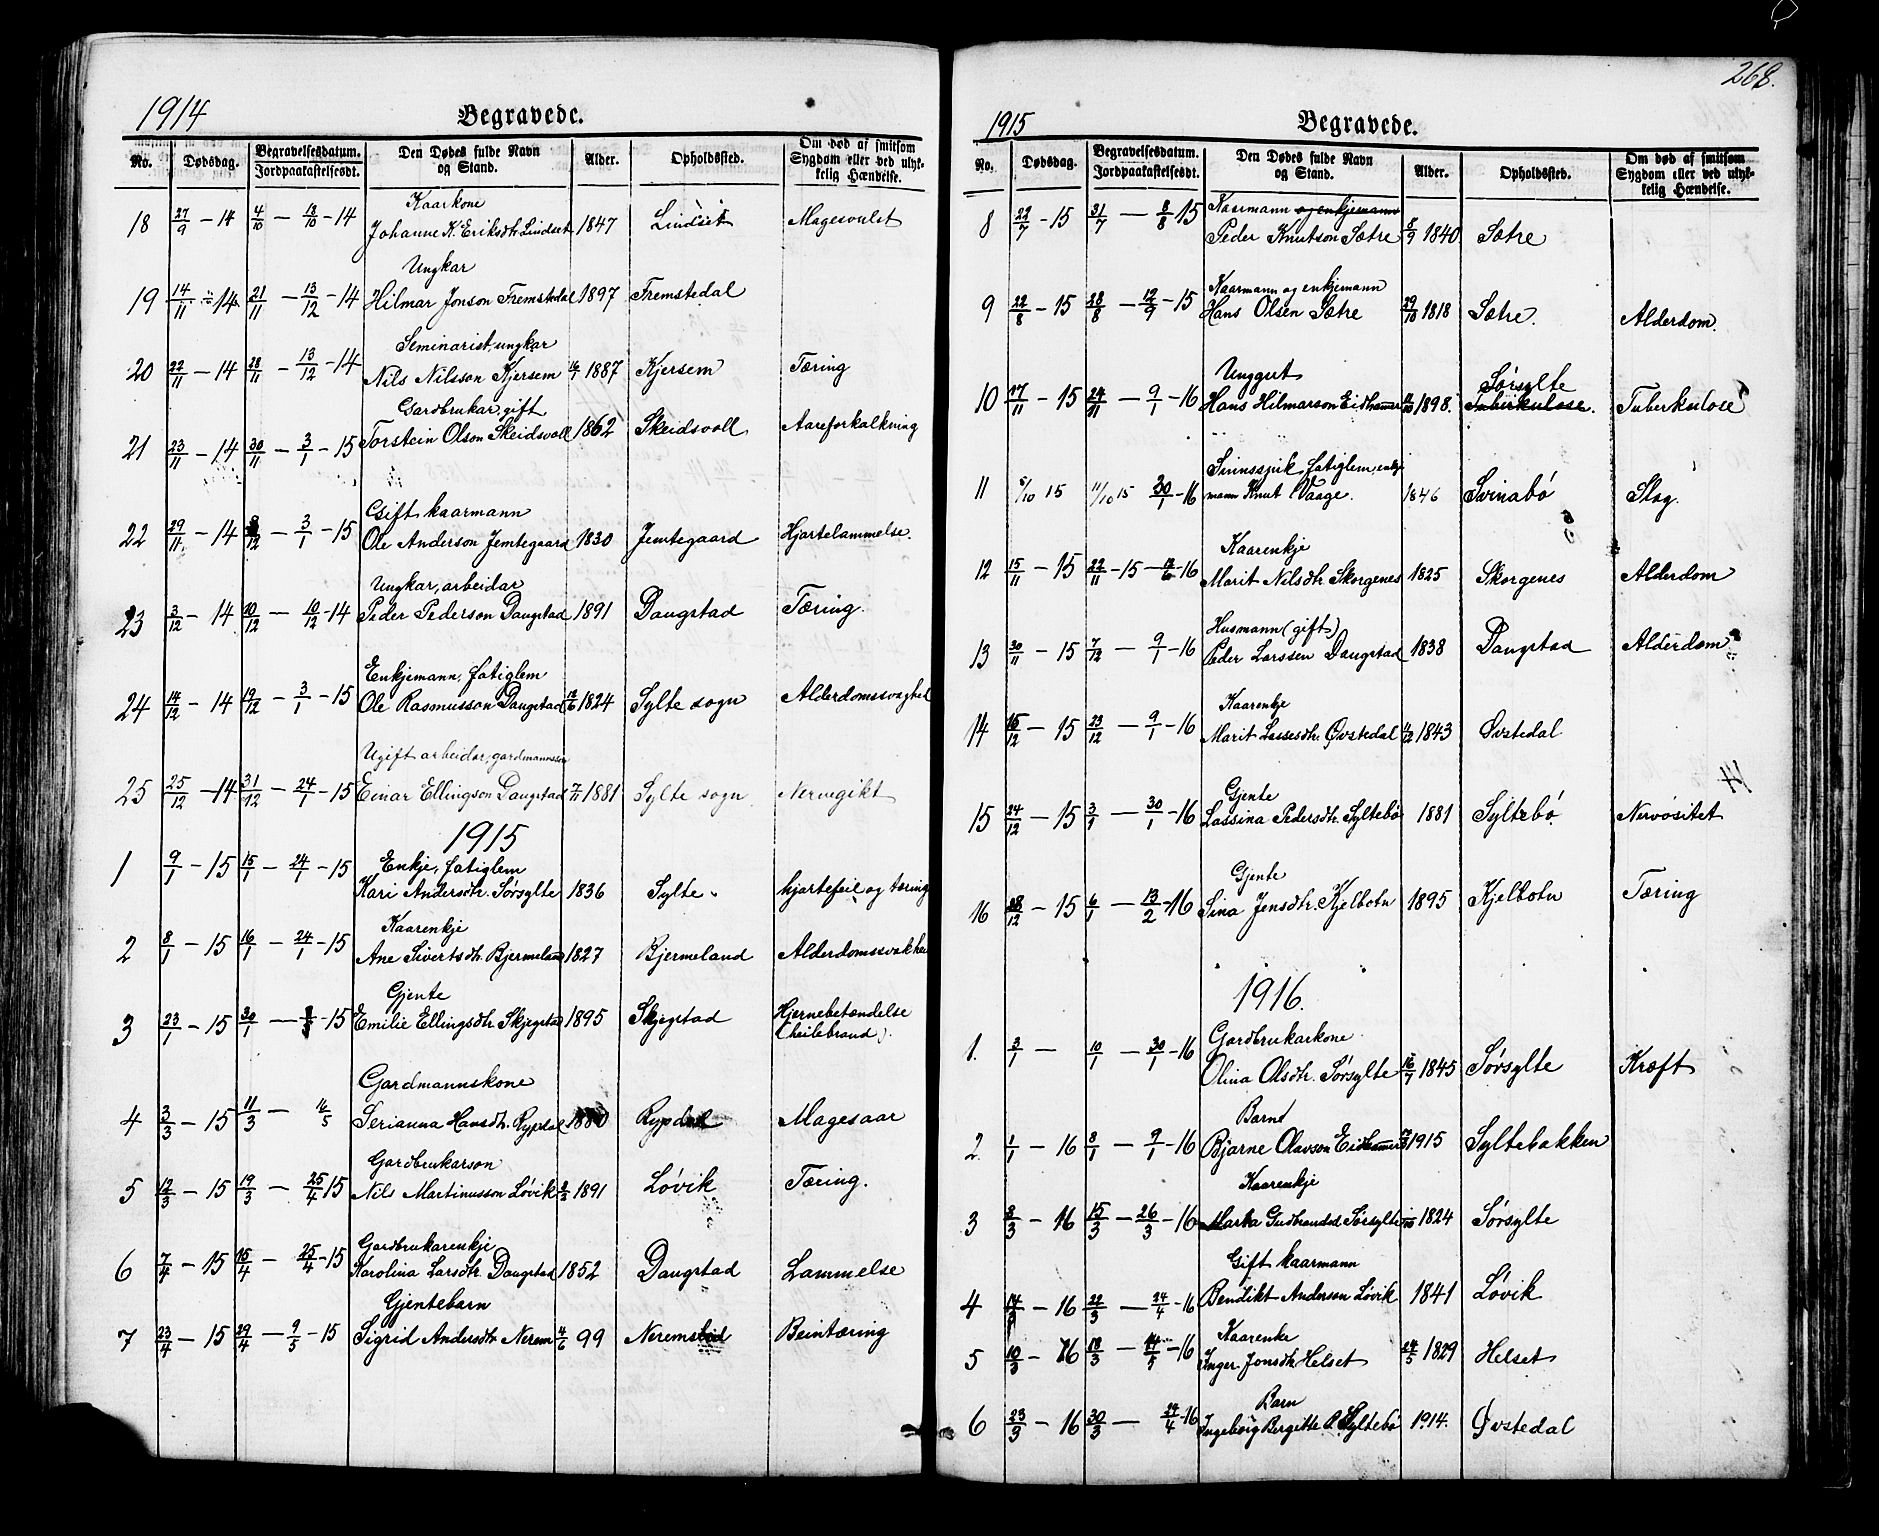 268.
1914 Begravede.
No. Dødsdag. Begravelsesdatum. Jordpaakastelsesdt. Den Dødes fulde Navn og Stand. Alder. Opholdssted. Om død af smitsom Sygdom eller ved ulykkelig Hændelse.
Kaarkone
18 27/9 - 14 4/10 - 13/10 - 14 Johanne K. Eriksdtr. Lindset 1847 Lindset Magesvulst
Ungkar
19 14/11 - 14 21/11 - 13/12 - 14 Hilmar Jonson Fremstedal 1897 Fremstedal
Seminarist, ungkar
20 22/11 - 14 28/11 - 13/12 - 14 Nils Nilsson Kjersem 1887 Kjersem Tæring
Gardbrukar, gift
21 23/11 - 14 30/11 - 3/1 - 15 Torstein Olson Skeidsvoll 1862 Skeidsvoll Aareforkalkning
Gift kaarmann
22 29/11 - 14 /12 - 3/1 - 15 Ole Anderson Jemtegaard 1830 Jemtegaard Hjartelammelse.
Ungkar, arbeidar
23 3/12 - 14 10/12 - 10/12 - 14 Peder Pederson Daugstad 1891 Daugstad Tæring.
Enkjemann, fatiglem
24 14/12 - 14 19/12 - 3/1 - 15 Ole Rasmusson Daugstad 1824 Sylte sogn Alderdomssvaghed
Ugift arbeidar, gardmannsson
25 25/12 - 14 31/12 - 24/1 - 15 Einar Ellingson Daugstad 7/11 1881 Sylte sogn Nervegikt
1915
Enkje, fatiglem
1 9/1 - 15 15/1 - 24/1 - 15 Kari Andersdtr. Sørsylte 1836 Sylte hjartefeil og tæring
Kaarenkje
2 8/1 - 15 16/1 - 24/1 - 15 Ane Sivertsdtr. Bjermeland 1827 Bjermeland Alderdomssvakhe
Gjente
3 23/1 - 15 30/1 - - 15 Emilie Ellingsdtr. Skjegstad 1895 Skjegstad Hjernebetændelse
(heilebrand).
Gardmannskone
4 3/3 - 15 11/3 - 16/5 Serianna Hansdtr. Rypdal 1880 Rypdal Magesaar
Gardbrukarson
5 12/3 - 15 19/3 - 25/4 15 Nils Martinusson Løvik 2/3 1891 Løvik Tæring.
Gardbrukarenkje
6 7/4 - 15 15/4 - 25/4 - 15 Karolina Larsdtr. Daugstad 1852 Daugstad Lammelse
Gjentebarn
7 23/4 - 15 29/4 - 9/5 - 15 Sigrid Andersdtr. Nerem 4/6 99 Nerem Beintæring
1915 Begravede.
No. Dødsdag. Begravelsesdatum. Jordpaakastelsesdt. Den Dødes fulde Navn og Stand. Alder. Opholdssted. Om død af smitsom Sygdom eller ved ulykkelig Hændelse.
Kaarmann og enkjemann
8 22/7 - 15 31/7 - 8/8 15 Peder Knutson Sætre 8/9 1840 Sætre
Kaarmann og enkjemann
9 22/8 - 15 28/8 - 12/9 - 15 Hans Olsen Sætre 29/10 1818 Sætre. Alderdom.
Unggut Sørsylte
10 17/11 - 15 24/11 - 9/1 - 16 Hans Hilmarson Eidhamer 1898. Tuberkulose. Tuberkulose
fatiglem, enkje-
11 5/10 15 11/10 15 30/1 - 16 mann Knut Vaage. 1846 Svinabø Slag.
Kaarenkje
12 15/11 - 15 22/11 - 15 - /6 - 16 Marit Nilsdtr. Skorgenes 1825 Skorgenes Alderdom
Husmann (gift)
13 30/11 - 15 7/12 - 9/1 - 16 Peder Larssen Daugstad 1838 Daugstad Alderdom
Kaarenkje
14 15/12 - 15 23/12 - 9/1 - 16 Marit Lassesdtr. Øvstedal 1843 Øvstedal
Gjente
15 24/12 - 15 3/1 - 30/1 - 16 Lassina Pedersdtr. Syltebø 1881 Syltebø Nervøsitet
Gjente
16 28/12 - 15 6/1 - 13/2 - 16 Sina Jensdtr. Kjelbotn 1895 Kjelbotn Tæring
1916.
Gardbrukarkone
1. 3/1 - 10/1 - 30/1 - 16 Olina Olsdtr. Sørsylte 16/7 1845 Sørsylte Kræft
Barnt
2 1/1 - 16 8/1 - 9/1 - 16 Bjarne Olavson Eidhamer 1915 Syltebakken
Kaarenkje
3 8/3 - 16 15/3 - 26/3 - 16 Marta Gudbrandsd Sørsylte 1824 Sørsylte
Gift kaarmann
4 14/3 - 16 22/3 - 24/4 - 16 Bendikt Anderson Løvik 1841 Løvik
Kaarenke
5 10/3 - 16 18/3 - 14/5 - 16 Inger Jonsdtr Helset 24/5 1829 Helset
Barn
6 23/3 - 16 30/3 - 24/4 - 16 Ingebrig Bergitte P. Syltebø 1914. Øvstedal